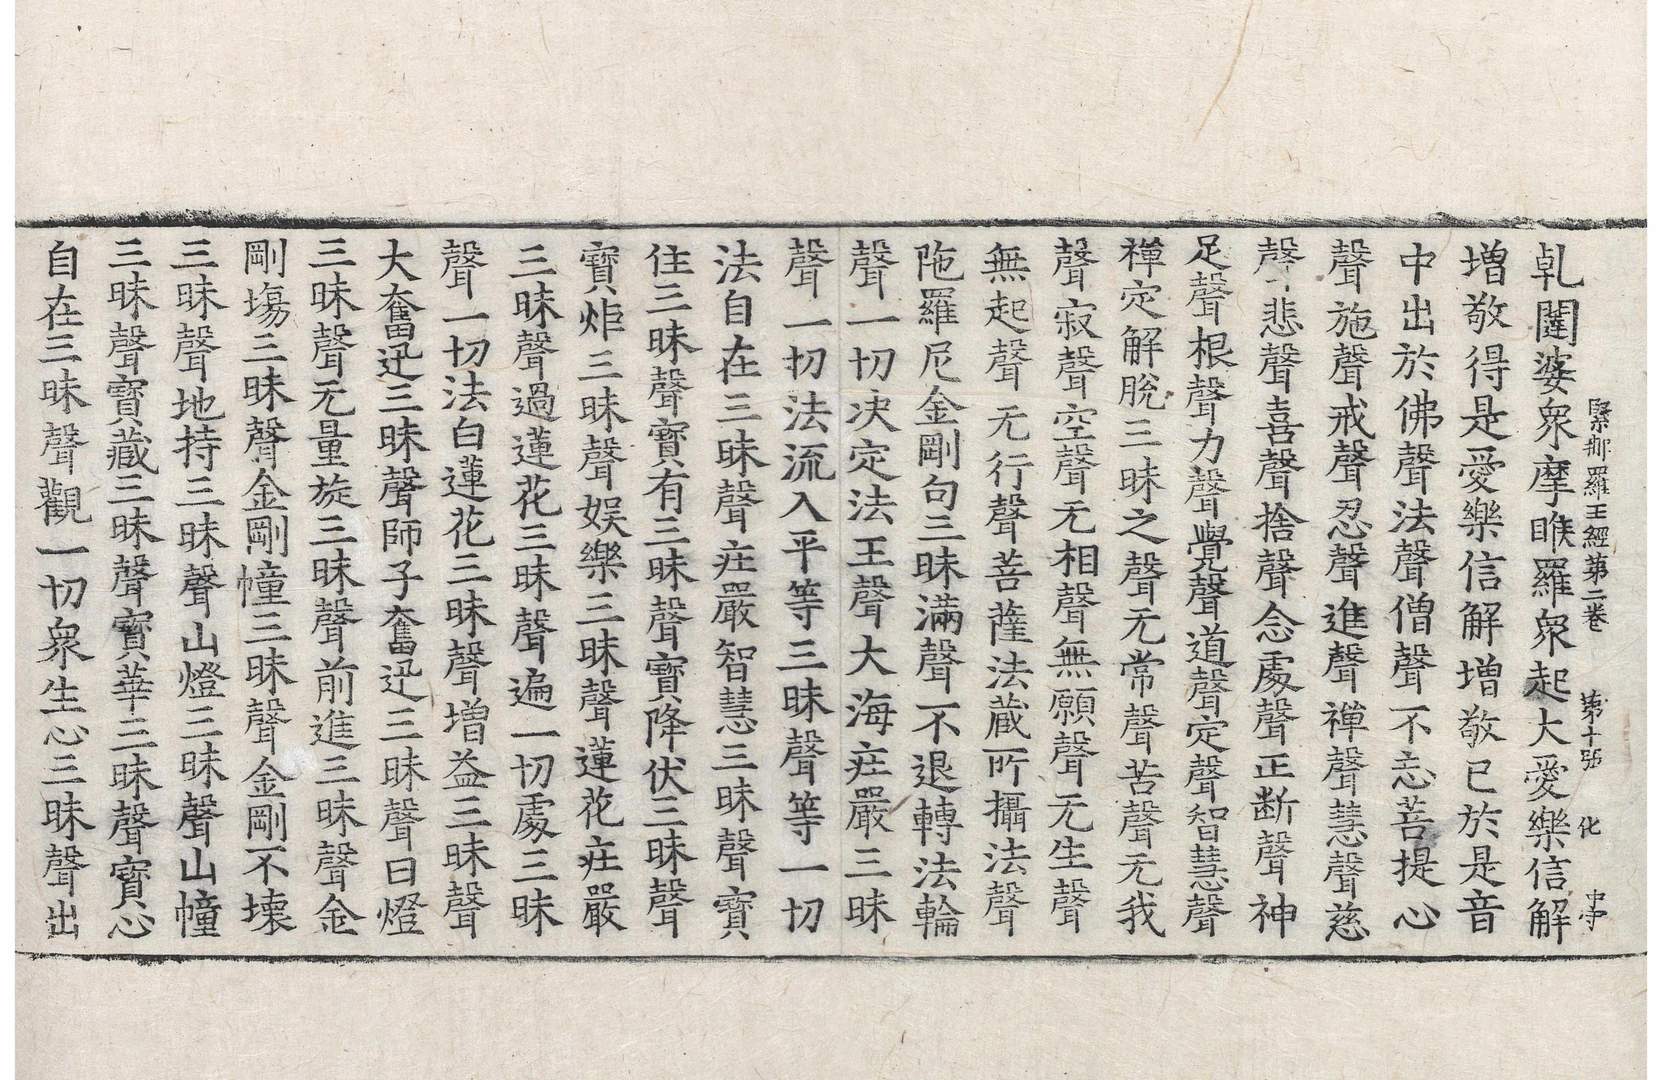 乹闥婆衆摩睺羅衆起大愛樂信解
緊那羅王經第二卷 第十張 化 中字
增敬得是愛樂信解增敬已於是音
中出於佛聲法聲僧聲不忘菩提心
聲施聲戒聲忍聲進聲禪聲慧聲慈
聲悲聲喜聲捨聲念處聲正断聲神
足聲根聲力聲覺聲道聲定聲智慧聲
禪定解脫三昧之聲无常聲苦聲无我
聲寂聲空聲无相聲無願聲无生聲
無起聲无行聲菩薩法藏所攝法聲
陁羅尼金剛句三昧滿聲不退轉法輪
聲一切决定法王聲大海庄嚴三昧
聲一切法流入平等三昧聲等一切
法自在三昧聲庄嚴智慧三昧聲寶
住三昧聲寶有三昧聲寶降伏三昧聲
寶炬三昧聲娛樂三昧聲蓮花庄嚴
三昧聲過蓮花三昧聲遍一切處三昧
聲一切法白蓮花三昧聲增益三昧聲
大奮迅三昧聲師子奮迅三昧聲日燈
三昧聲无量旋三昧聲前進三昧聲金
剛塲三昧聲金剛幢三昧聲金剛不壞
三昧聲地持三昧聲山燈三昧聲山幢
三昧聲寶藏三昧聲寶華三昧聲寶心
自在三昧聲觀一切衆生心三昧聲出